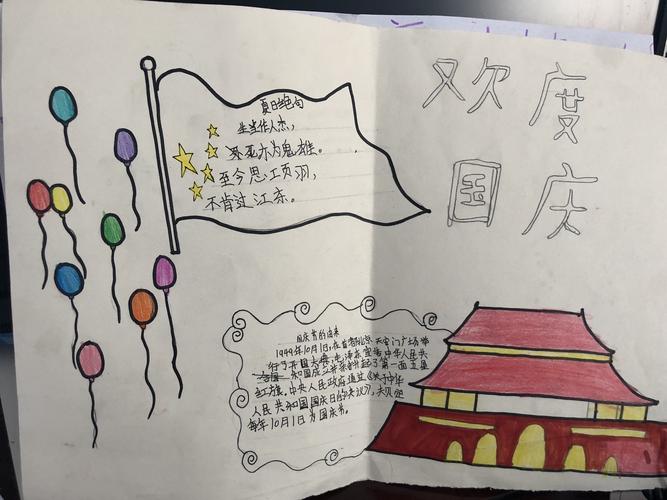 欢度
国庆
夏日绝句
生当作人杰，
死亦为鬼雄。
至今思项羽，
不肯过江东。
国庆节的由来
1949年10月1日，在首都北京天安门广场举
行了开国大典，毛泽东宣告中华人民共
和国成立并亲手升起了第一面五星
红旗。中央人民政府通过《关于中华
人民共和国国庆日的决议》，
每年10月1日为国庆节。